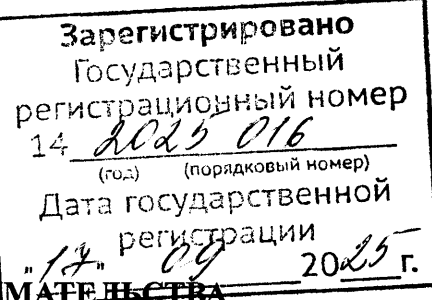 Зарегистрировано
Государственный
регистрационный номер
14 2025 016
(год) (порядковый номер)
Дата государственной
регистрации
"17" 09 2025 г.
МАТЕЛЬСТВА